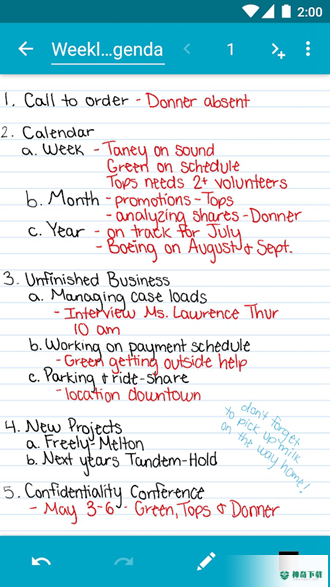 2:00
Weekl...genda
1
1. Call to order - Donner absent
2. Calendar
a. Week - Taney on sound
Green on schedule
Tops needs 2+ volunteers
b. Month - promotions - Tops
- analyzing shares - Donner
c. Year - on track for July
- Boeing on August & Sept.
3. Unfinished Business
a. Managing case loads
- Interview Ms. Lawrence Thur
10 am
b. Working on payment schedule
- Green getting outside help
c. Parking & ride-share
- location downtown
don't forget
to pick up milk
on the way home!
4. New Projects
a. Freely-Melton
b. Next years Tandem-Hold
5. Confidentiality Conference
- May 3-6 - Green, Tops & Donner
神奇下载